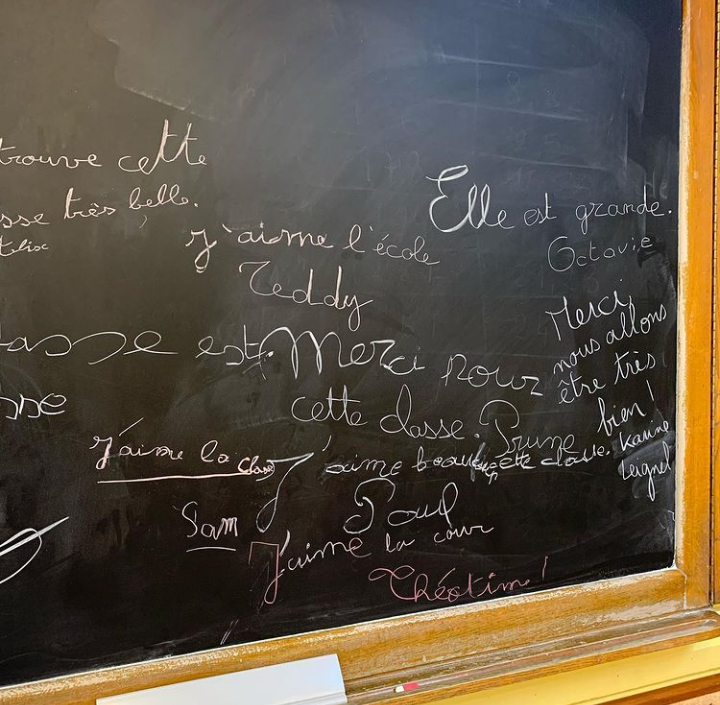 trouve cette
sse très belle.
Elle est grande.
Octavie
j'aime l'école
Teddy
Merci,
nous allons
être très
bien !
Karine
asse est
Merci pour
cette classe. Prune
sse
j'aime la classe
J'aime beaucoup cette classe.
Paul
Sam
J'aime la cour
Théotime !